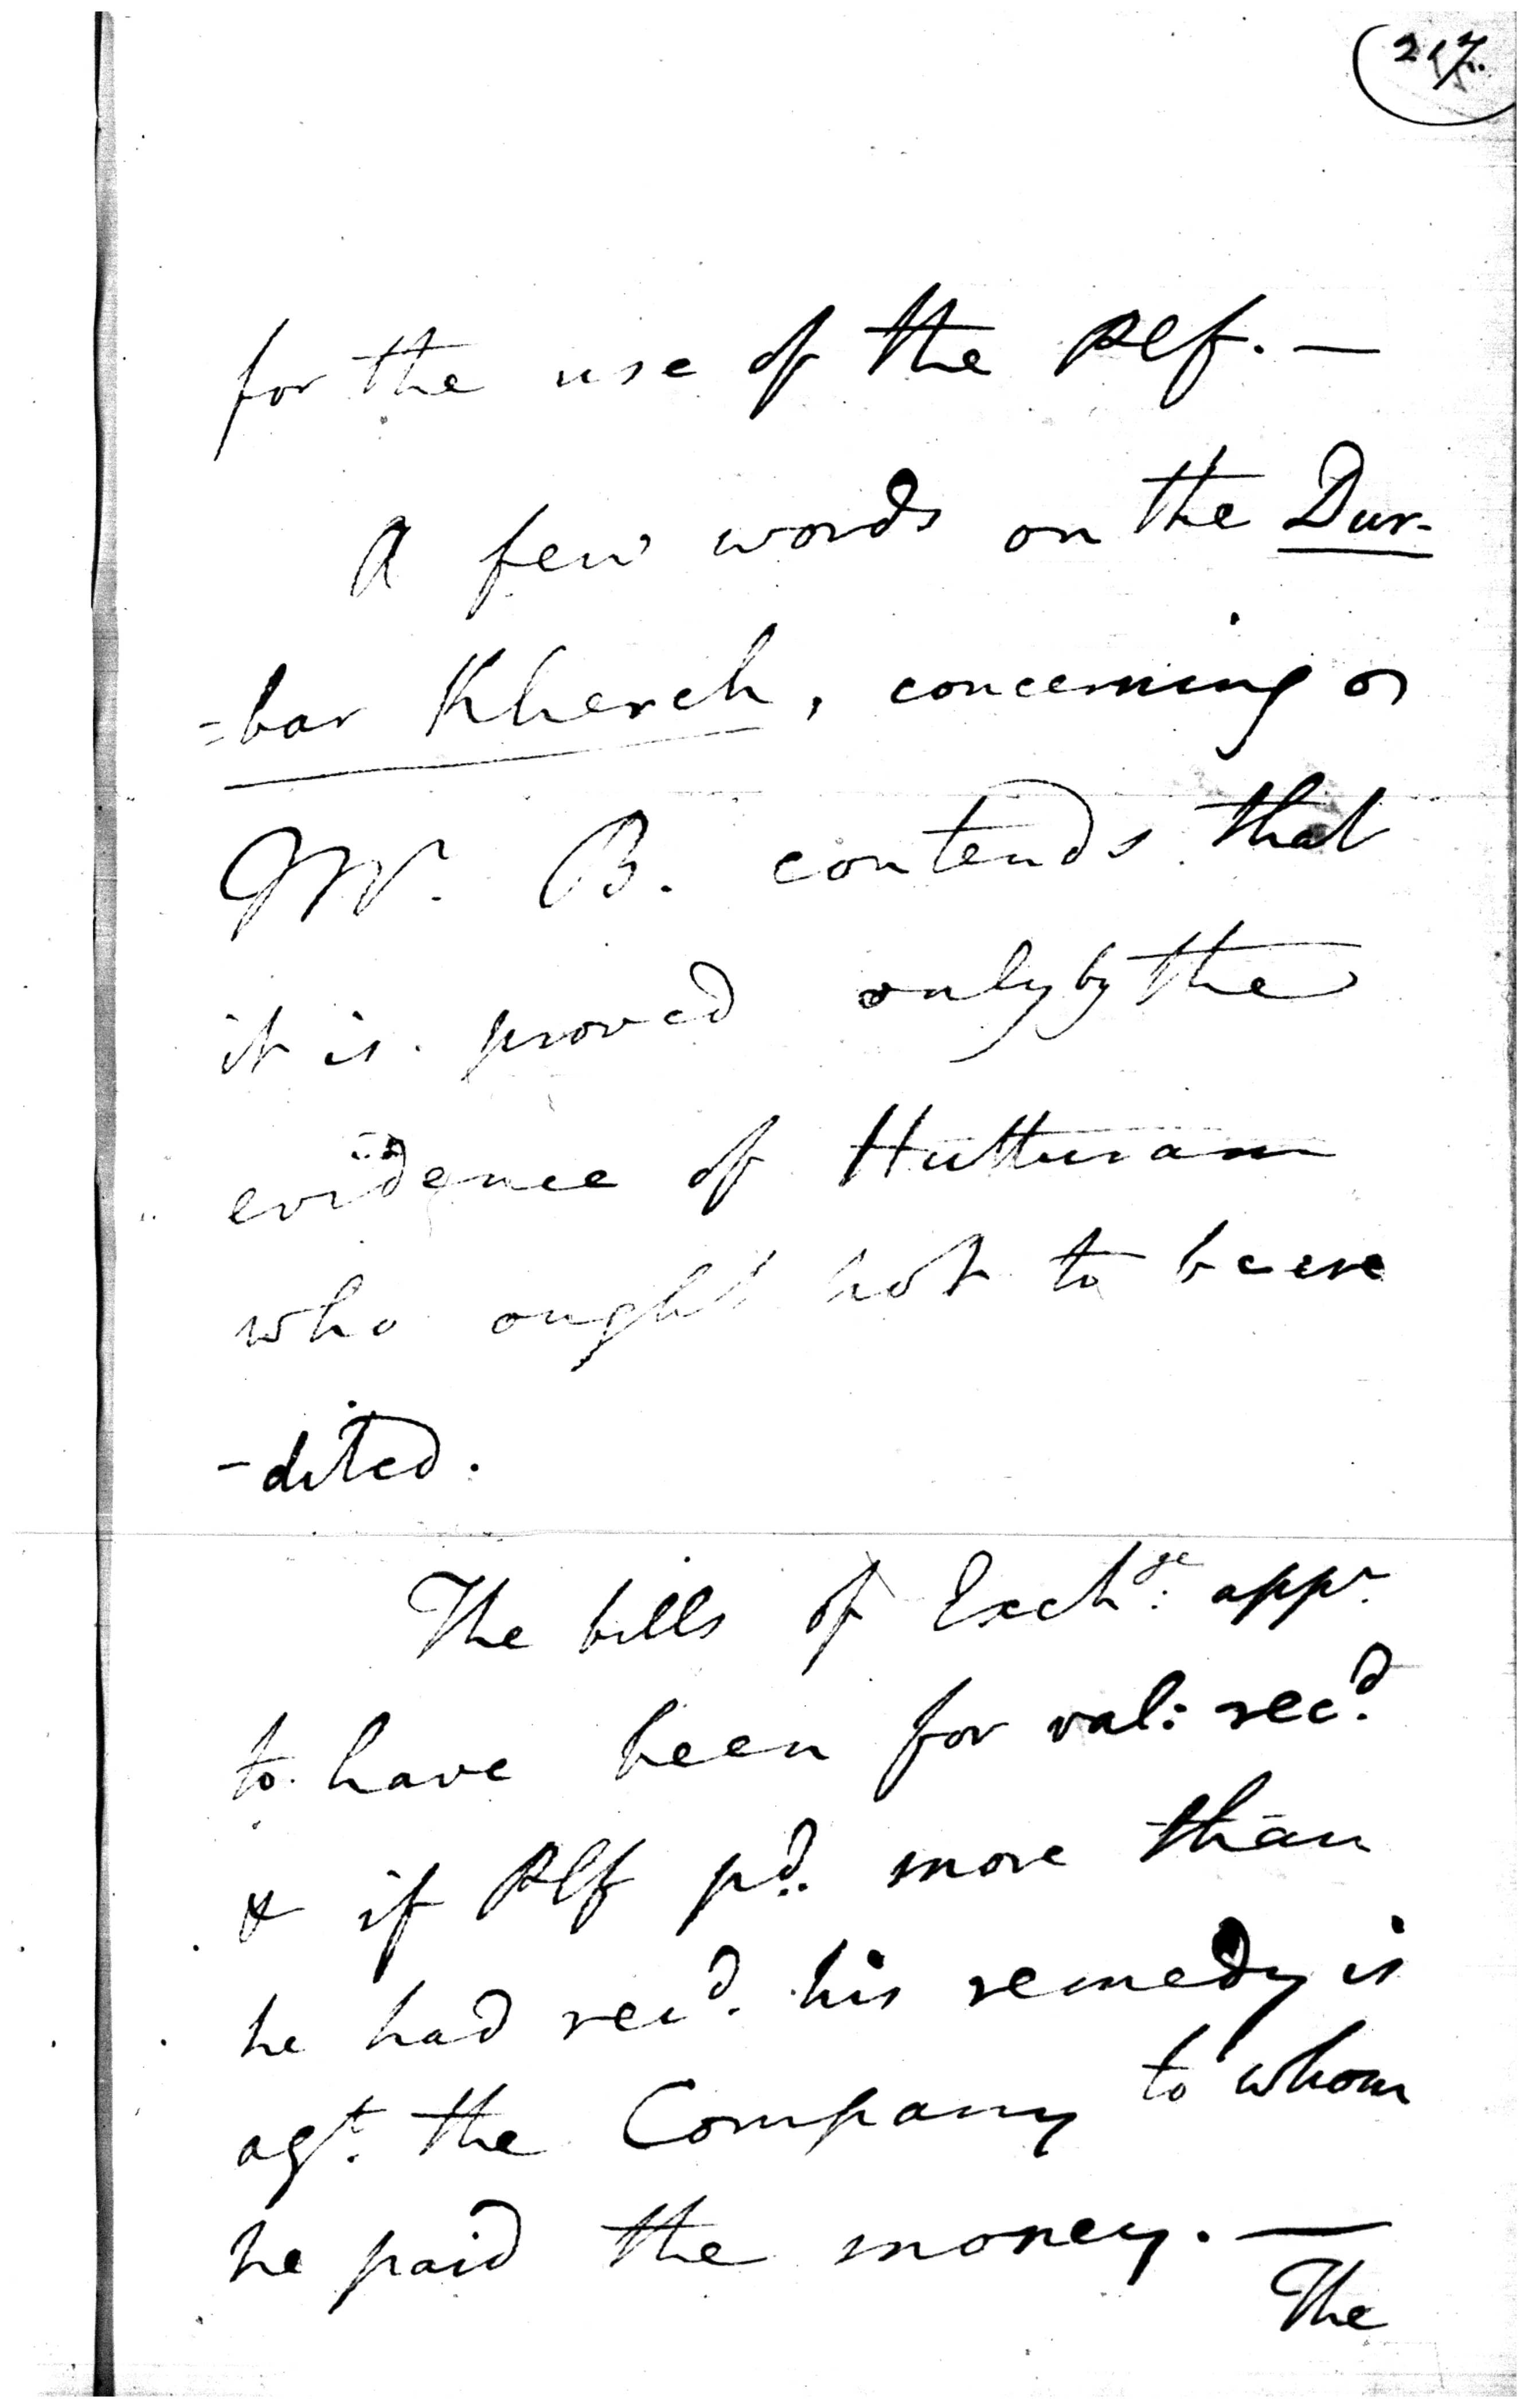 217.
for the use of the Plf. —
A few words on the Dur-
=bar Kherch, concerning
Mr. B. contends that
it is proved only by the
evidence of Hutturam
who ought not to be cre
-dited.
The bills of Exchge. appr.
to have been for val: recd.
& if Plf pd. more than
he had recd. his remedy is
agt. the Company to whom
he paid the money. —
The